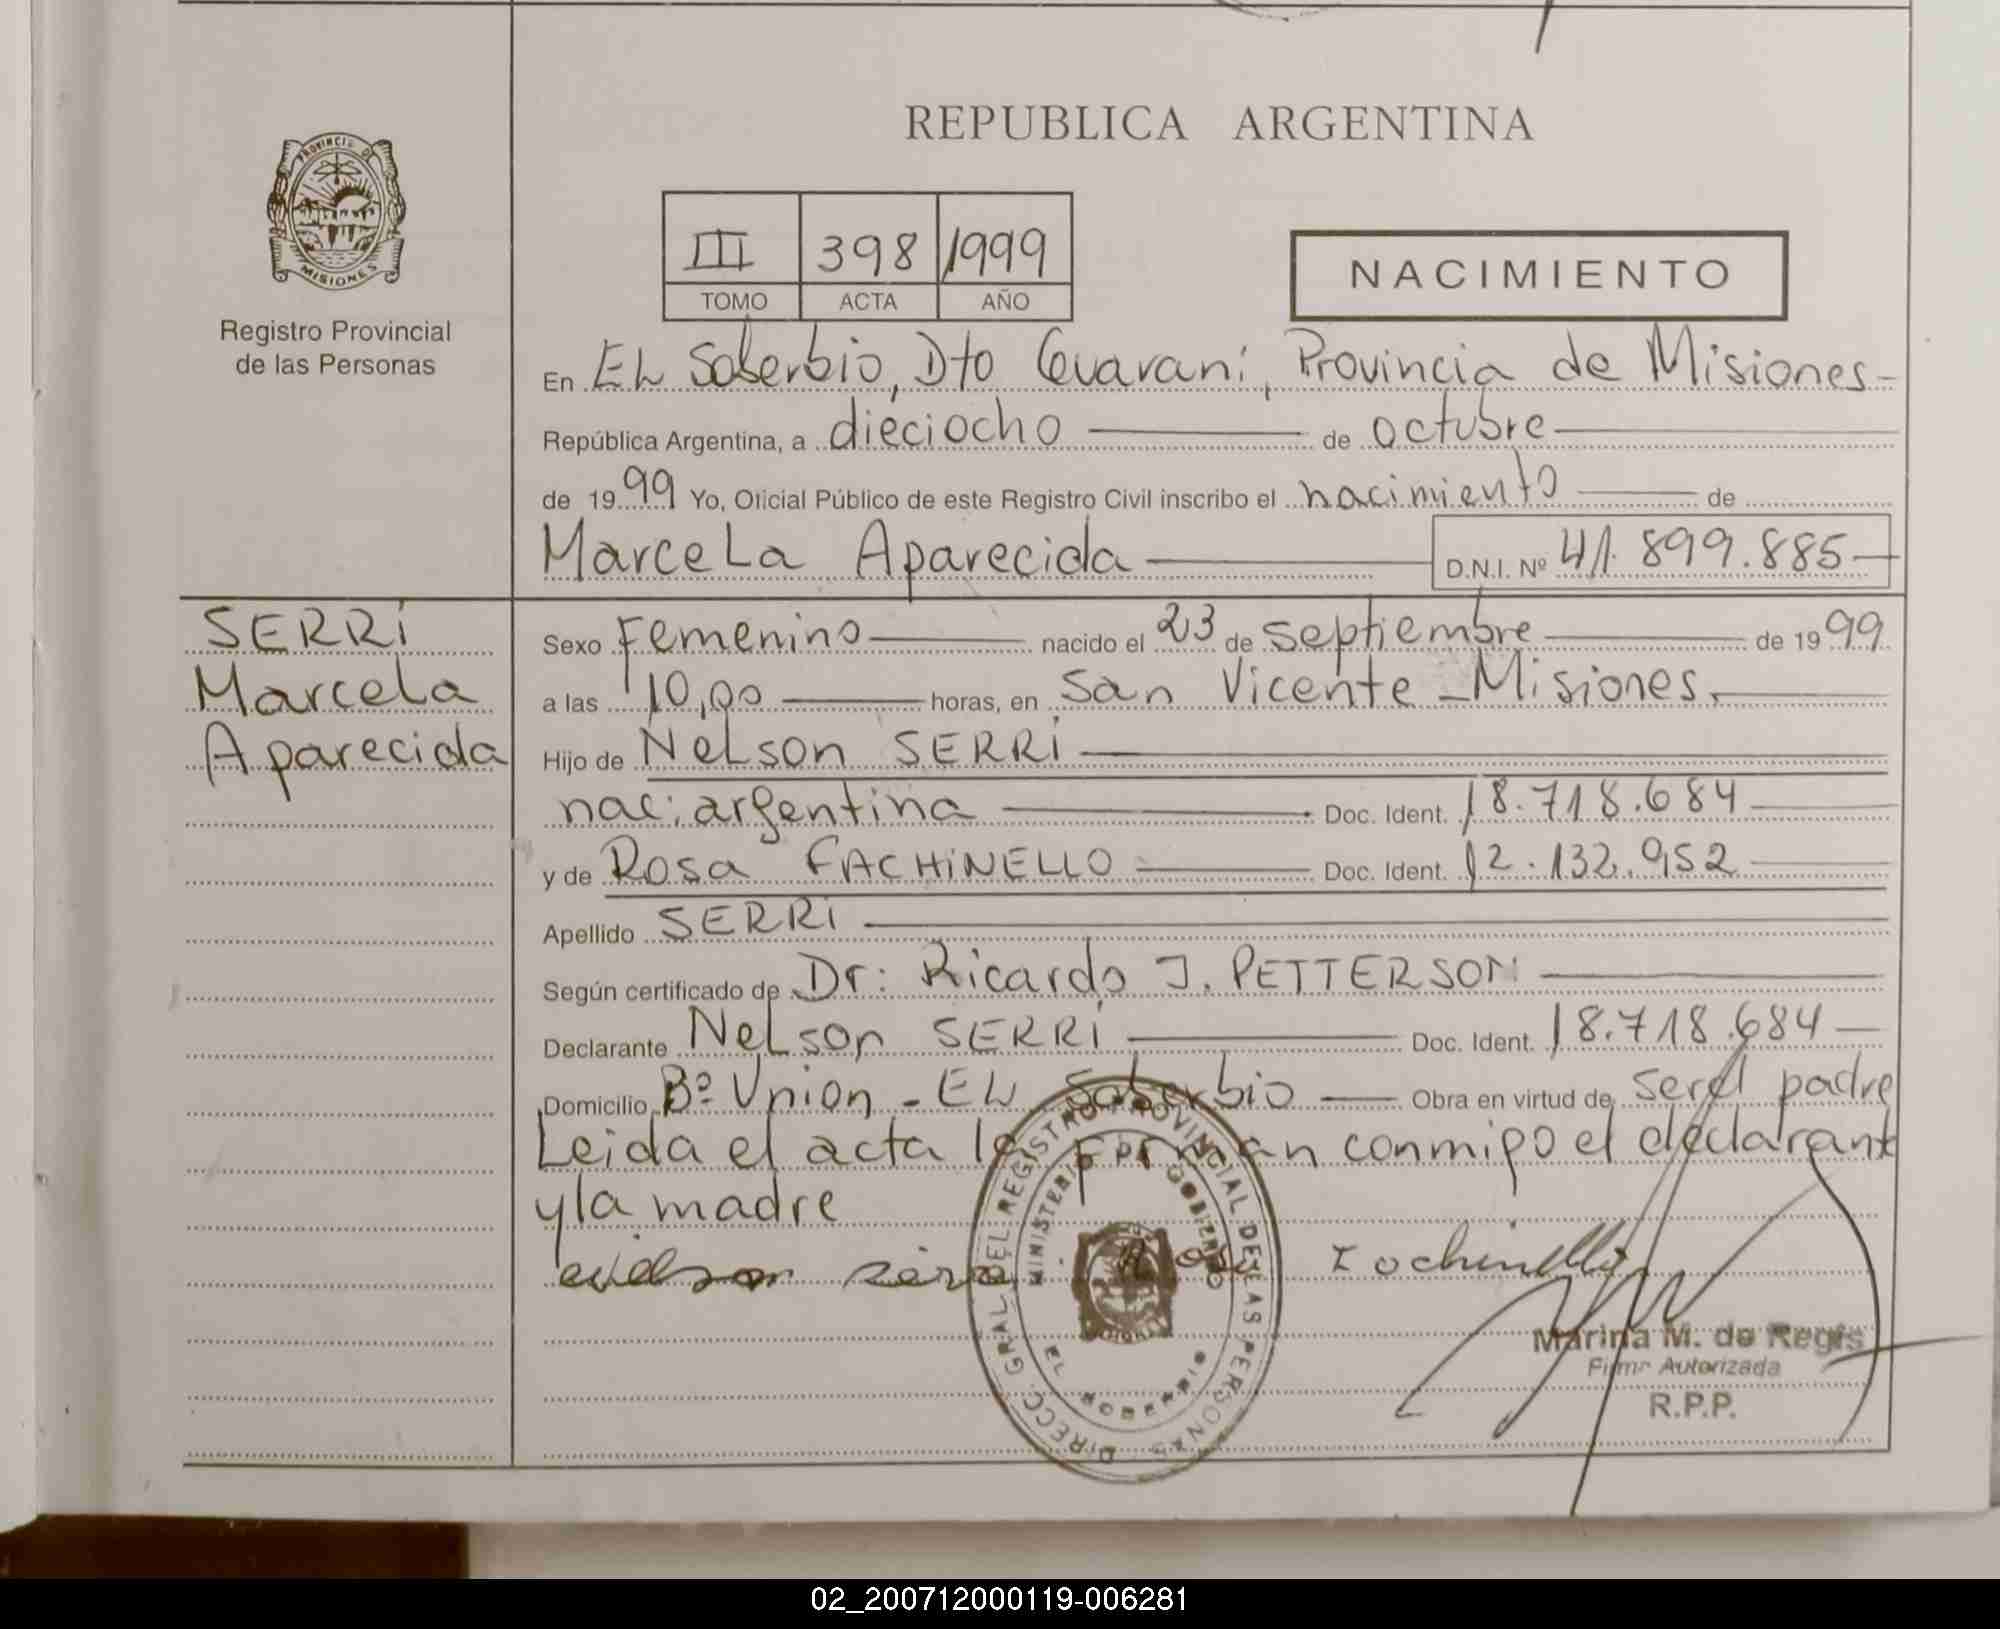 REPUBLICA ARGENTINA
PROVINCIA DE
MISIONES
Registro Provincial
de las Personas
III 398 1999
TOMO ACTA AÑO
NACIMIENTO
En EL Soberbio, Dto Guaraní, Provincia de Misiones-
República Argentina, a dieciocho de octubre
de 1999 Yo, Oficial Público de este Registro Civil inscribo el nacimiento de
Marcela Aparecida D.N.I. Nº 41.899.885
SERRI
Marcela
Aparecida
Sexo Femenino nacido el 23 de septiembre de 1999
a las 10,00 horas, en San Vicente - Misiones.
Hijo de Nelson SERRI
nac: argentina Doc. Ident. 18.718.684
y de Rosa FACHINELLO Doc. Ident. 12.132.952
Apellido SERRI
Según certificado de Dr: Ricardo J. PETTERSON
Declarante Nelson SERRI Doc. Ident. 18.718.684
Domicilio Bº Union - EL Soberbio Obra en virtud de ser el padre
Leida el acta la firman conmigo el declarant
y la madre
DIRECC. GRAL DEL REGISTRO PROVINCIAL DE LAS PERSONAS
MINISTERIO GOBIERNO
EL SOBERBIO
Marina M. de Regis
Firma Autorizada
R.P.P.
02_200712000119-006281